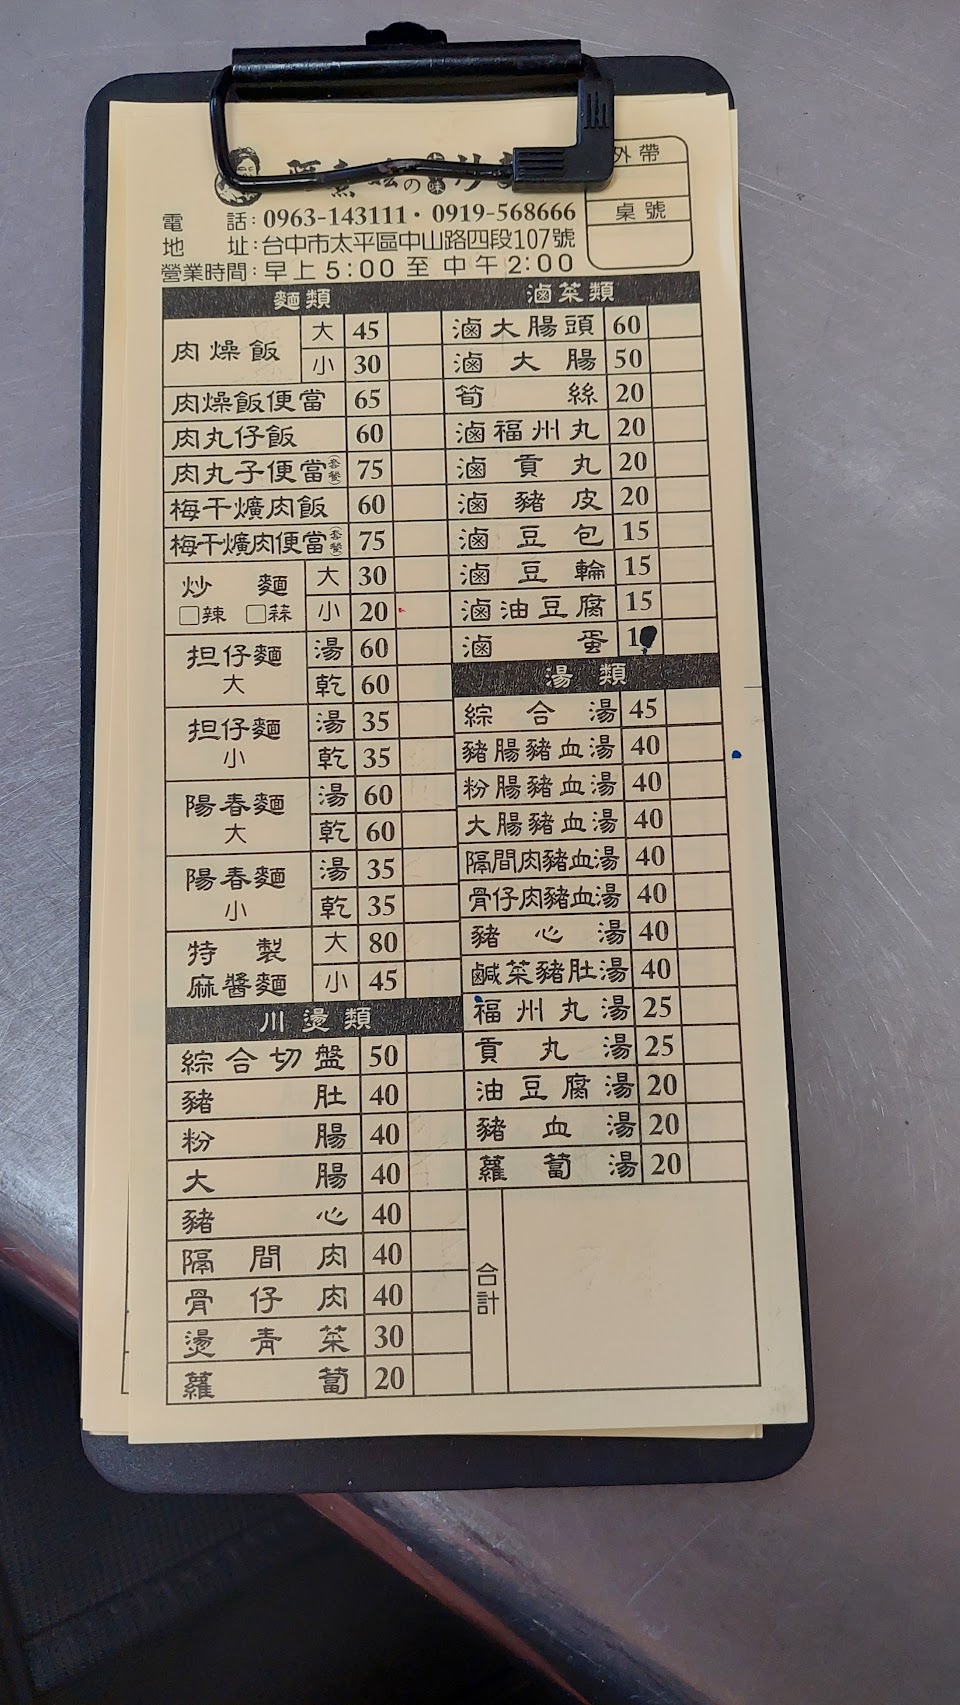 外帶
桌號
電話:0963-143111・0919-568666
地址:台中市太平區中山路四段107號
營業時間:早上5:00至中午2:00
麵類
肉燥飯 大 45
小 30
肉燥飯便當 65
肉丸仔飯 60
肉丸子便當(套餐) 75
梅干爌肉飯 60
梅干爌肉便當(套餐) 75
炒麵 大 30
□辣 □蒜 小 20
担仔麵 大 湯 60
乾 60
担仔麵 小 湯 35
乾 35
陽春麵 大 湯 60
乾 60
陽春麵 小 湯 35
乾 35
特製麻醬麵 大 80
小 45
川燙類
綜合切盤 50
豬肚 40
粉腸 40
大腸 40
豬心 40
隔間肉 40
骨仔肉 40
燙青菜 30
蘿蔔 20
滷菜類
滷大腸頭 60
滷大腸 50
筍絲 20
滷福州丸 20
滷貢丸 20
滷豬皮 20
滷豆包 15
滷豆輪 15
滷油豆腐 15
滷蛋
湯類
綜合湯 45
豬腸豬血湯 40
粉腸豬血湯 40
大腸豬血湯 40
隔間肉豬血湯 40
骨仔肉豬血湯 40
豬心湯 40
鹹菜豬肚湯 40
福州丸湯 25
貢丸湯 25
油豆腐湯 20
豬血湯 20
蘿蔔湯 20
合計